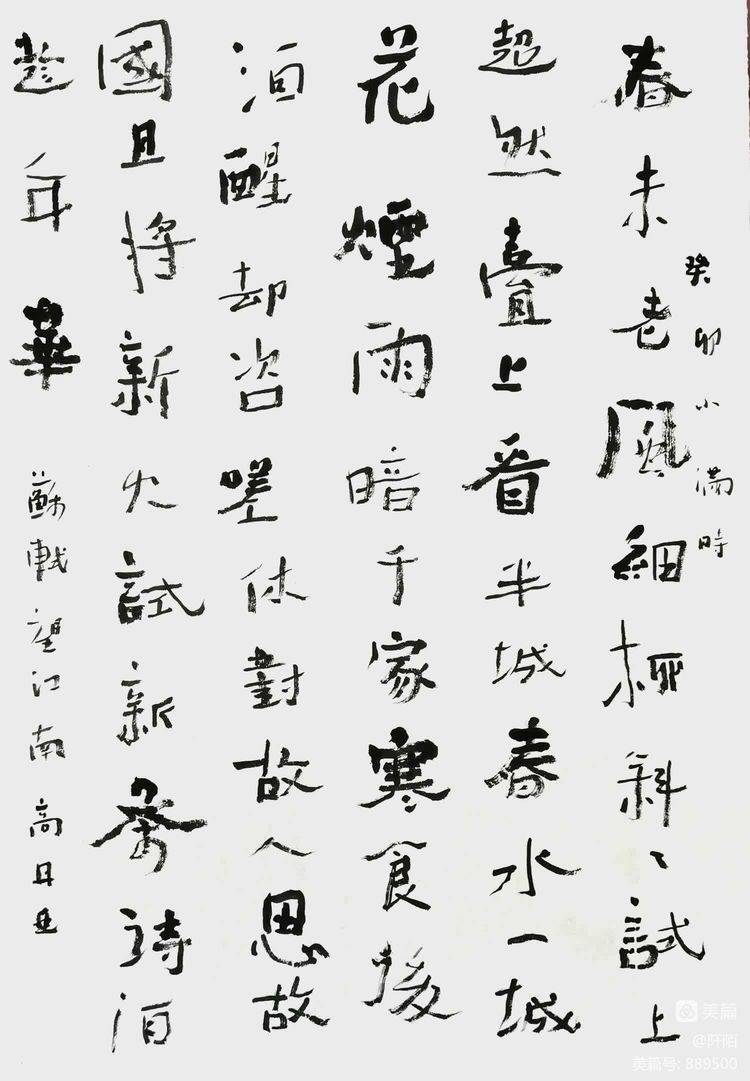 癸卯小滿時
春未老風細柳斜〻試上
超然臺上看半城春水一城
花煙雨暗千家寒食後
酒醒却咨嗟休對故人思故
國且將新火試新茶詩酒
趁年華
蘇軾望江南 高
美篇
@阡陌
美篇号: 889500